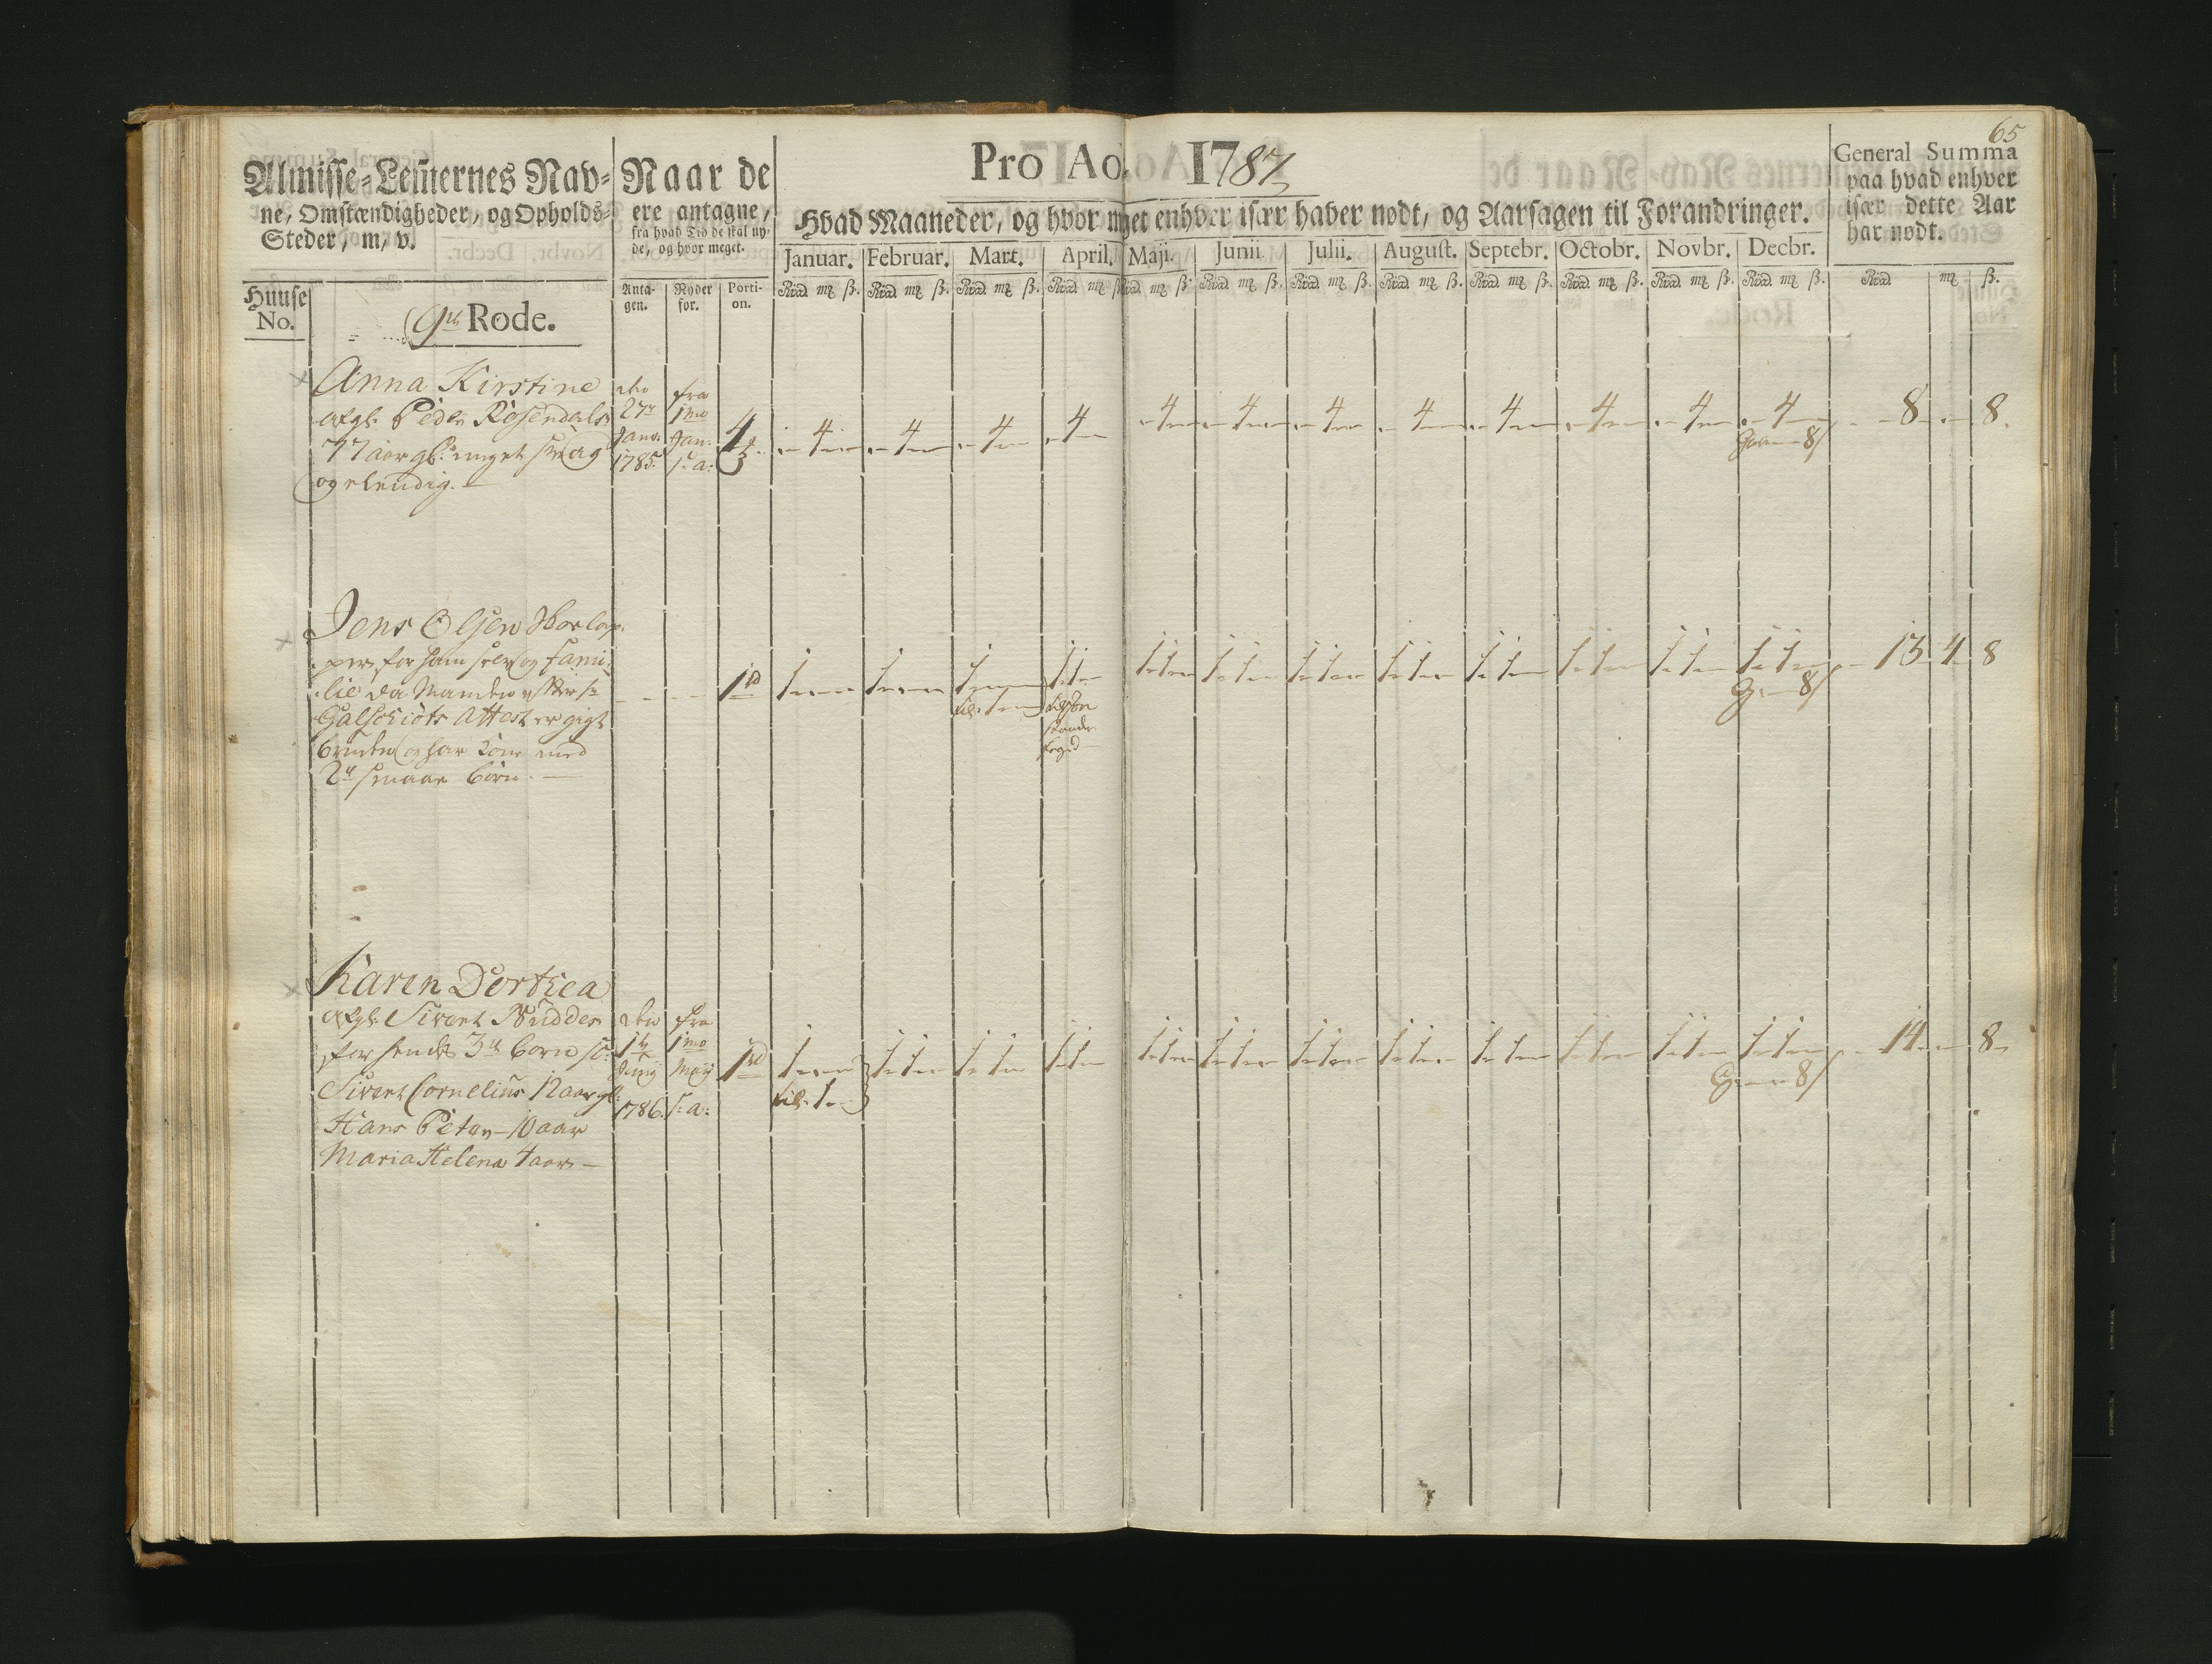 65
Almisse-Lemmernes Nav-
ne, Omstændigheder, og Opholds-
Steder, m, v.
Naar de
ere antagne,
fra hvad Tid de skal ny-
de, og hvor meget.
Pro Ao. 1787
Hvad Maaneder, og hvor meget enhver især haver nødt, og Aarsagen til Forandringer.
General Summa
paa hvad enhver
især dette Aar
har nødt.
Januar. Februar. Mart. April. Maji. Junii Julii. August. Septebr. Octobr. Novbr. Decbr.
Huuse
No.
9de Rode.
Anta-
gen.
Nyder
for.
Porti-
on.
Rdd. mk ß. Rdd. mk ß. Rdd. mk ß. Rdd. mk ß. Rdd. mk ß. Rdd. mk ß. Rdd. mk ß. Rdd. mk ß. Rdd. mk ß. Rdd. mk ß. Rdd. mk ß. Rdd mk ß.
Anna Kirstine
afgl. Peder Rosendals
77 aar gl. meget svag
og elendig.
27
Janv.
1785.
fra
1mo
Jan:
s. a:
4
4 4 4 4 4 4 4 4 4 4 4 4 8 8
8/
Jens Olsen
for ham selv og Fami-
lie da Manden efter
Galschiöts Attest er gigt
bruden og har Kone med
2 smaae børn.
1rd
1 1 1 1 1 1 1 1 1 1 1 1 1 1 1 1 1 1 1 1 1 13 4 8
8/
Karen Dorthea
afgl. Sivert Buddes
for hendes 3de børn
Sivert Cornelius 12 aar gl:
Hans Peter 10 aar
Maria Helena 4 aar
1
Junij
1786.
fra
1mo
Maij
s. a:
1rd
1 1 1 1 1 1 1 1 1 1 1 1 1 1 1 1 1 1 1 1 1 1 1 14 8
8/